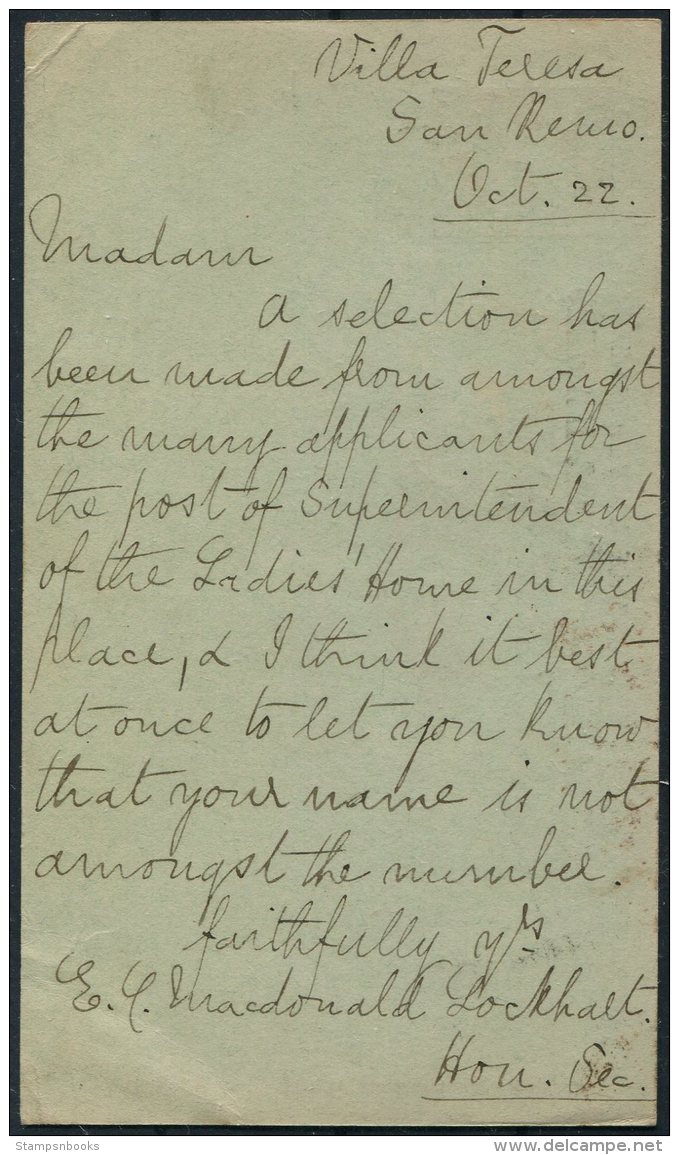 Villa Teresa
San Remo.
Oct. 22.
Madam
A selection has
been made from amongst
the many applicants for
the post of Superintendent
of the Ladies' Home in this
place, & I think it best
at once to let you know
that your name is not
amongst the number.
faithfully yrs
E. C. Macdonald Lockhart.
Hon. Sec.
Stampsnbooks